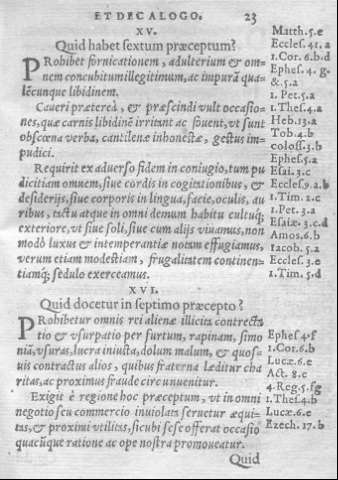 ET DECALOGO. 23
XV.
Quid habet sextum præceptum?
PRobibet fornicationem, adulterium & om-
nem concubitum illegitimum, ac impurã qua-
lẽcunque libidinem.
Caueri prætereà, & præscindi vult occasio-
nes, quæ carnis libidinẽ irritant ac fouent, vt sunt
obscœna verba, cantilenæ inhonestæ, gestus im-
pudici.
Requirit ex aduerso fidem in coniugio, tum pu
dicitiam omnem, siue cordis in cogitationibus, &
desiderijs, siue corporis in lingua, facie, oculis, au
ribus, tactu atque in omni demum habitu cultuq́;
exteriore, vt siue soli, siue cum alijs viuamus, non
modò luxus & intemperantiæ notam effugiamus,
verum etiam modestiam, frugalitatem continen-
tiamq́; sedulo exerceamus.
XVI.
Quid docetur in septimo præcepto?
PRobibetur omnis rei alienæ illicita contrecta
tio & vsurpatio per furtum, rapinam, simo
niã, vsuras, lucra iniusta, dolum malum, & quos-
uis contractus alios, quibus fraterna læditur cha
ritas, ac proximus fraude circunuenitur.
Exigit è regione hoc præceptum, vt in omni
negotio seu commercio inuiolata seruetur æqui-
tas, & proximi vtilitas, sicubi sese offerat occasio
quacũque ratione ac ope nostra promoueatur.
Quid
Matth.5.e
Eccles.41.a
1.Cor.6.b.d
Ephes.4.g.
&.5.a
1.Pet.5.a
1.Thes.4.a
Heb.13.a
Tob.4.b
coloss.3.b
Ephes.5.a
Esai.3.c
Eccles.9.a.b
1.Tim.2.c
1.Pet.3.a
Esaiæ.3.c.d
Amos.6.b
Iacob.5.a
Eccles.3.e
1.Tim.5.d
Ephes 4.f
1.Cor.6.b
Lucæ.6.e
Act.8.c
4.Reg.5.fg
1.Thes.4.b
Lucæ.6.e
Ezech.17.b